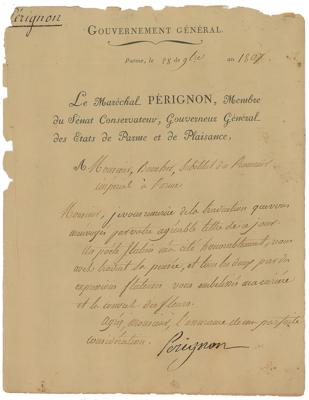 Pérignon
GOUVERNEMENT GÉNÉRAL.
Parme, le 28 de 9bre an 1807
Le Maréchal PÉRIGNON, Membre
du Sénat Conservateur, Gouverneur Général
des Etats de Parme et de Plaisance,
A Monsieur, Substitut du Procureur
impérial à Parme
Monsieur, je vous remercie de la traduction que vous
m'envoyez par votre agréable lettre de ce jour.
Un poète italien m'a cité honorablement, vous
avez traduit sa pensée, et tous les deux par des
expressions flatteuses vous embellissez ma carrière
et la de fleurs.
Agréez, monsieur, l'assurance de ma parfaite
considération.
Pérignon